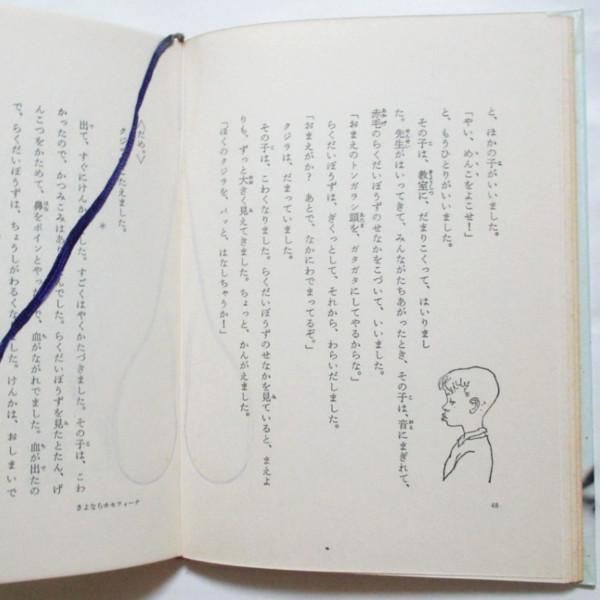 と、ほかの子がいいました。
「やい、めんこをよこせ！」
と、もうひとりがいいました。
その子は、教室に、だまりこくって、はいりまし
た。先生がはいってきて、みんながたちあがったとき、その子は、音にまぎれて、
赤毛のらくだいぼうずのせなかをこづいて、いいました。
「おまえのトンガラシ頭を、ガタガタにしてやるからな。」
らくだいぼうずは、ぎくっとして、それから、わらいだしました。
「おまえがか？　あとで、なかにわでまってるぞ。」
クジラは、だまっていました。
その子は、こわくなりました。らくだいぼうずのせなかを見ていると、まえよ
りも、ずっと大きく見えてきました。ちょっと、かんがえました。
「ぼくのクジラを、パッと、はなしちゃうか！」
48
〈だめ。〉
クジ たえました。
*
出て、すぐにけんか ました。すごくはやくかたづきました。その子は、こわ
かったので、かつみこみはあ んでした。らくだいぼうずを見たとたん、げ
んこつをかためて、鼻をポインとやっ で、血がながれでました。血が出たの
で、らくだいぼうずは、ちょうしがわるくな ました。けんかは、おしまいで
さよならホセフィーナ